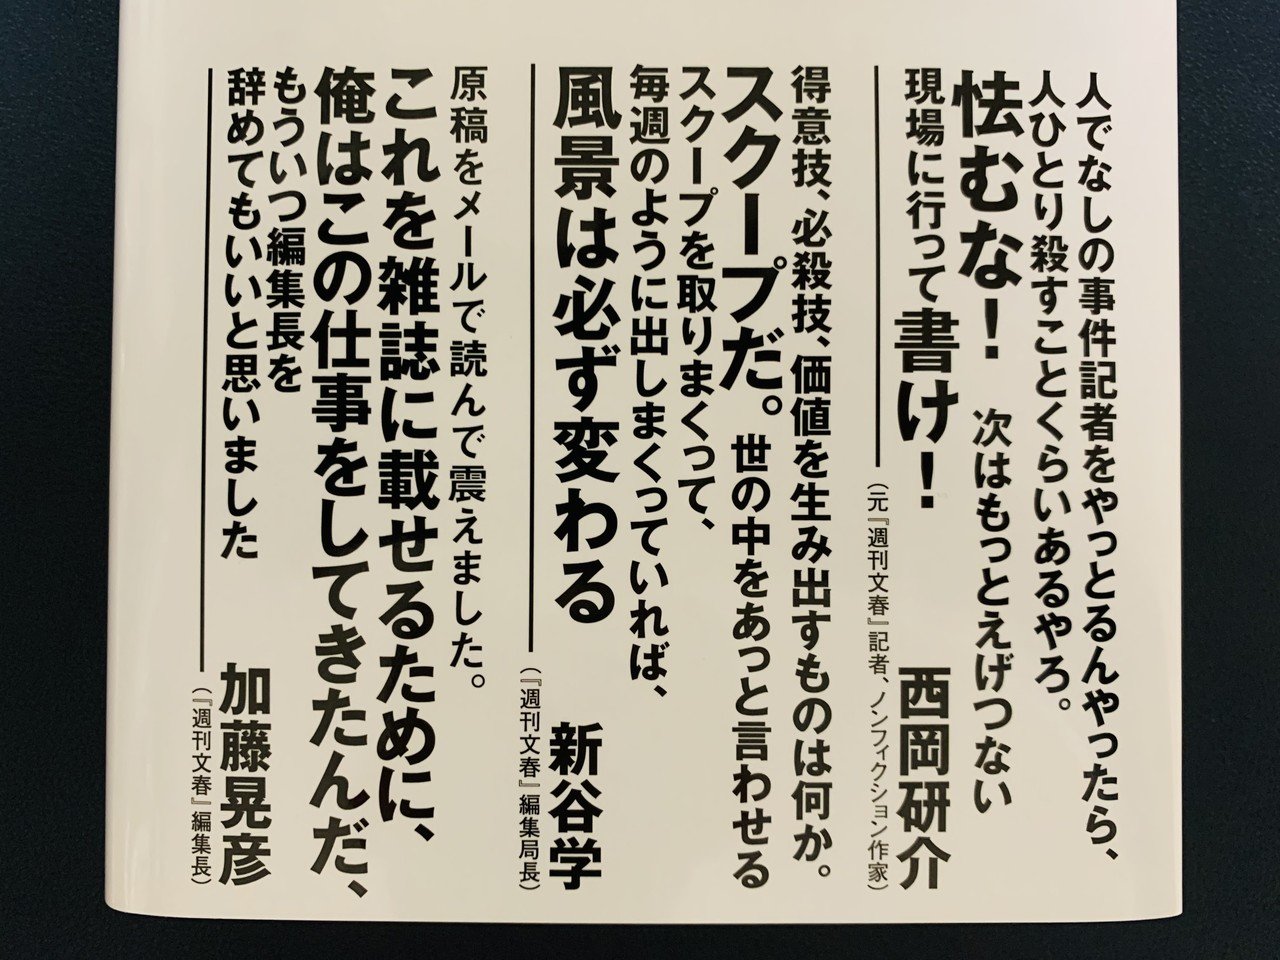 人でなしの事件記者をやっとるんやったら、
人ひとり殺すことくらいあるやろ。
怯むな！ 次はもっとえげつない
現場に行って書け！
西岡研介
（元『週刊文春』記者、ノンフィクション作家）
得意技、必殺技、価値を生み出すものは何か。
スクープだ。世の中をあっと言わせる
スクープを取りまくって、
毎週のように出しまくっていれば、
風景は必ず変わる
新谷学
（『週刊文春』編集局長）
原稿をメールで読んで震えました。
これを雑誌に載せるために、
俺はこの仕事をしてきたんだ、
もういつ編集長を
辞めてもいいと思いました
加藤晃彦
（『週刊文春』編集長）